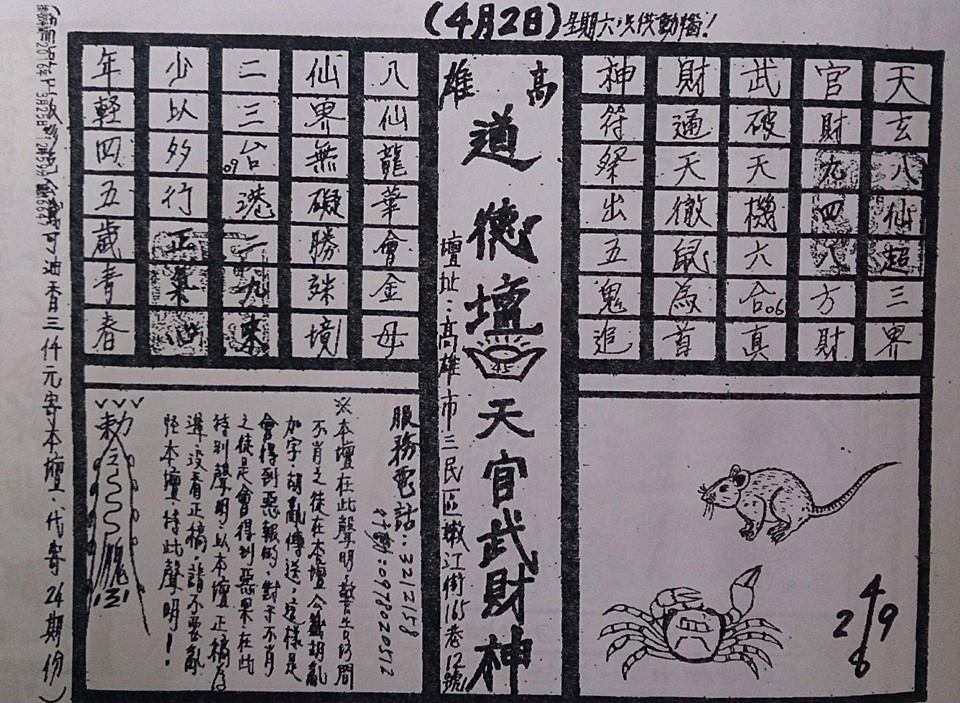 (4月2日)星期六供動檔!
天玄八仙超三界
官財九四八方財
武破天機六合06真
財通天徹鼠為首
神符祭出五鬼追
高雄
道德壇
天官武財神
壇址:高雄市三民區嫩江街165巷12號
八仙龍華會金母
仙界無礙勝誅境
二三台09港二九來
少以外行正菓四
年輕四五歲青春
服務電話:3212158
行動:0978020512
※本壇在此聲明,警告坊間
不肖之徒在本壇公籤胡亂
加字,胡亂傳送,這樣是
會得到惡報的,對于不肖
之徒是會得到惡果在此
特別聲明,以本壇正稿為
準,沒看正稿,請不要亂
怪本壇,特此聲明!
敕令
4
2 9
8
可油香三仟元寄本壇,代寄24期份)